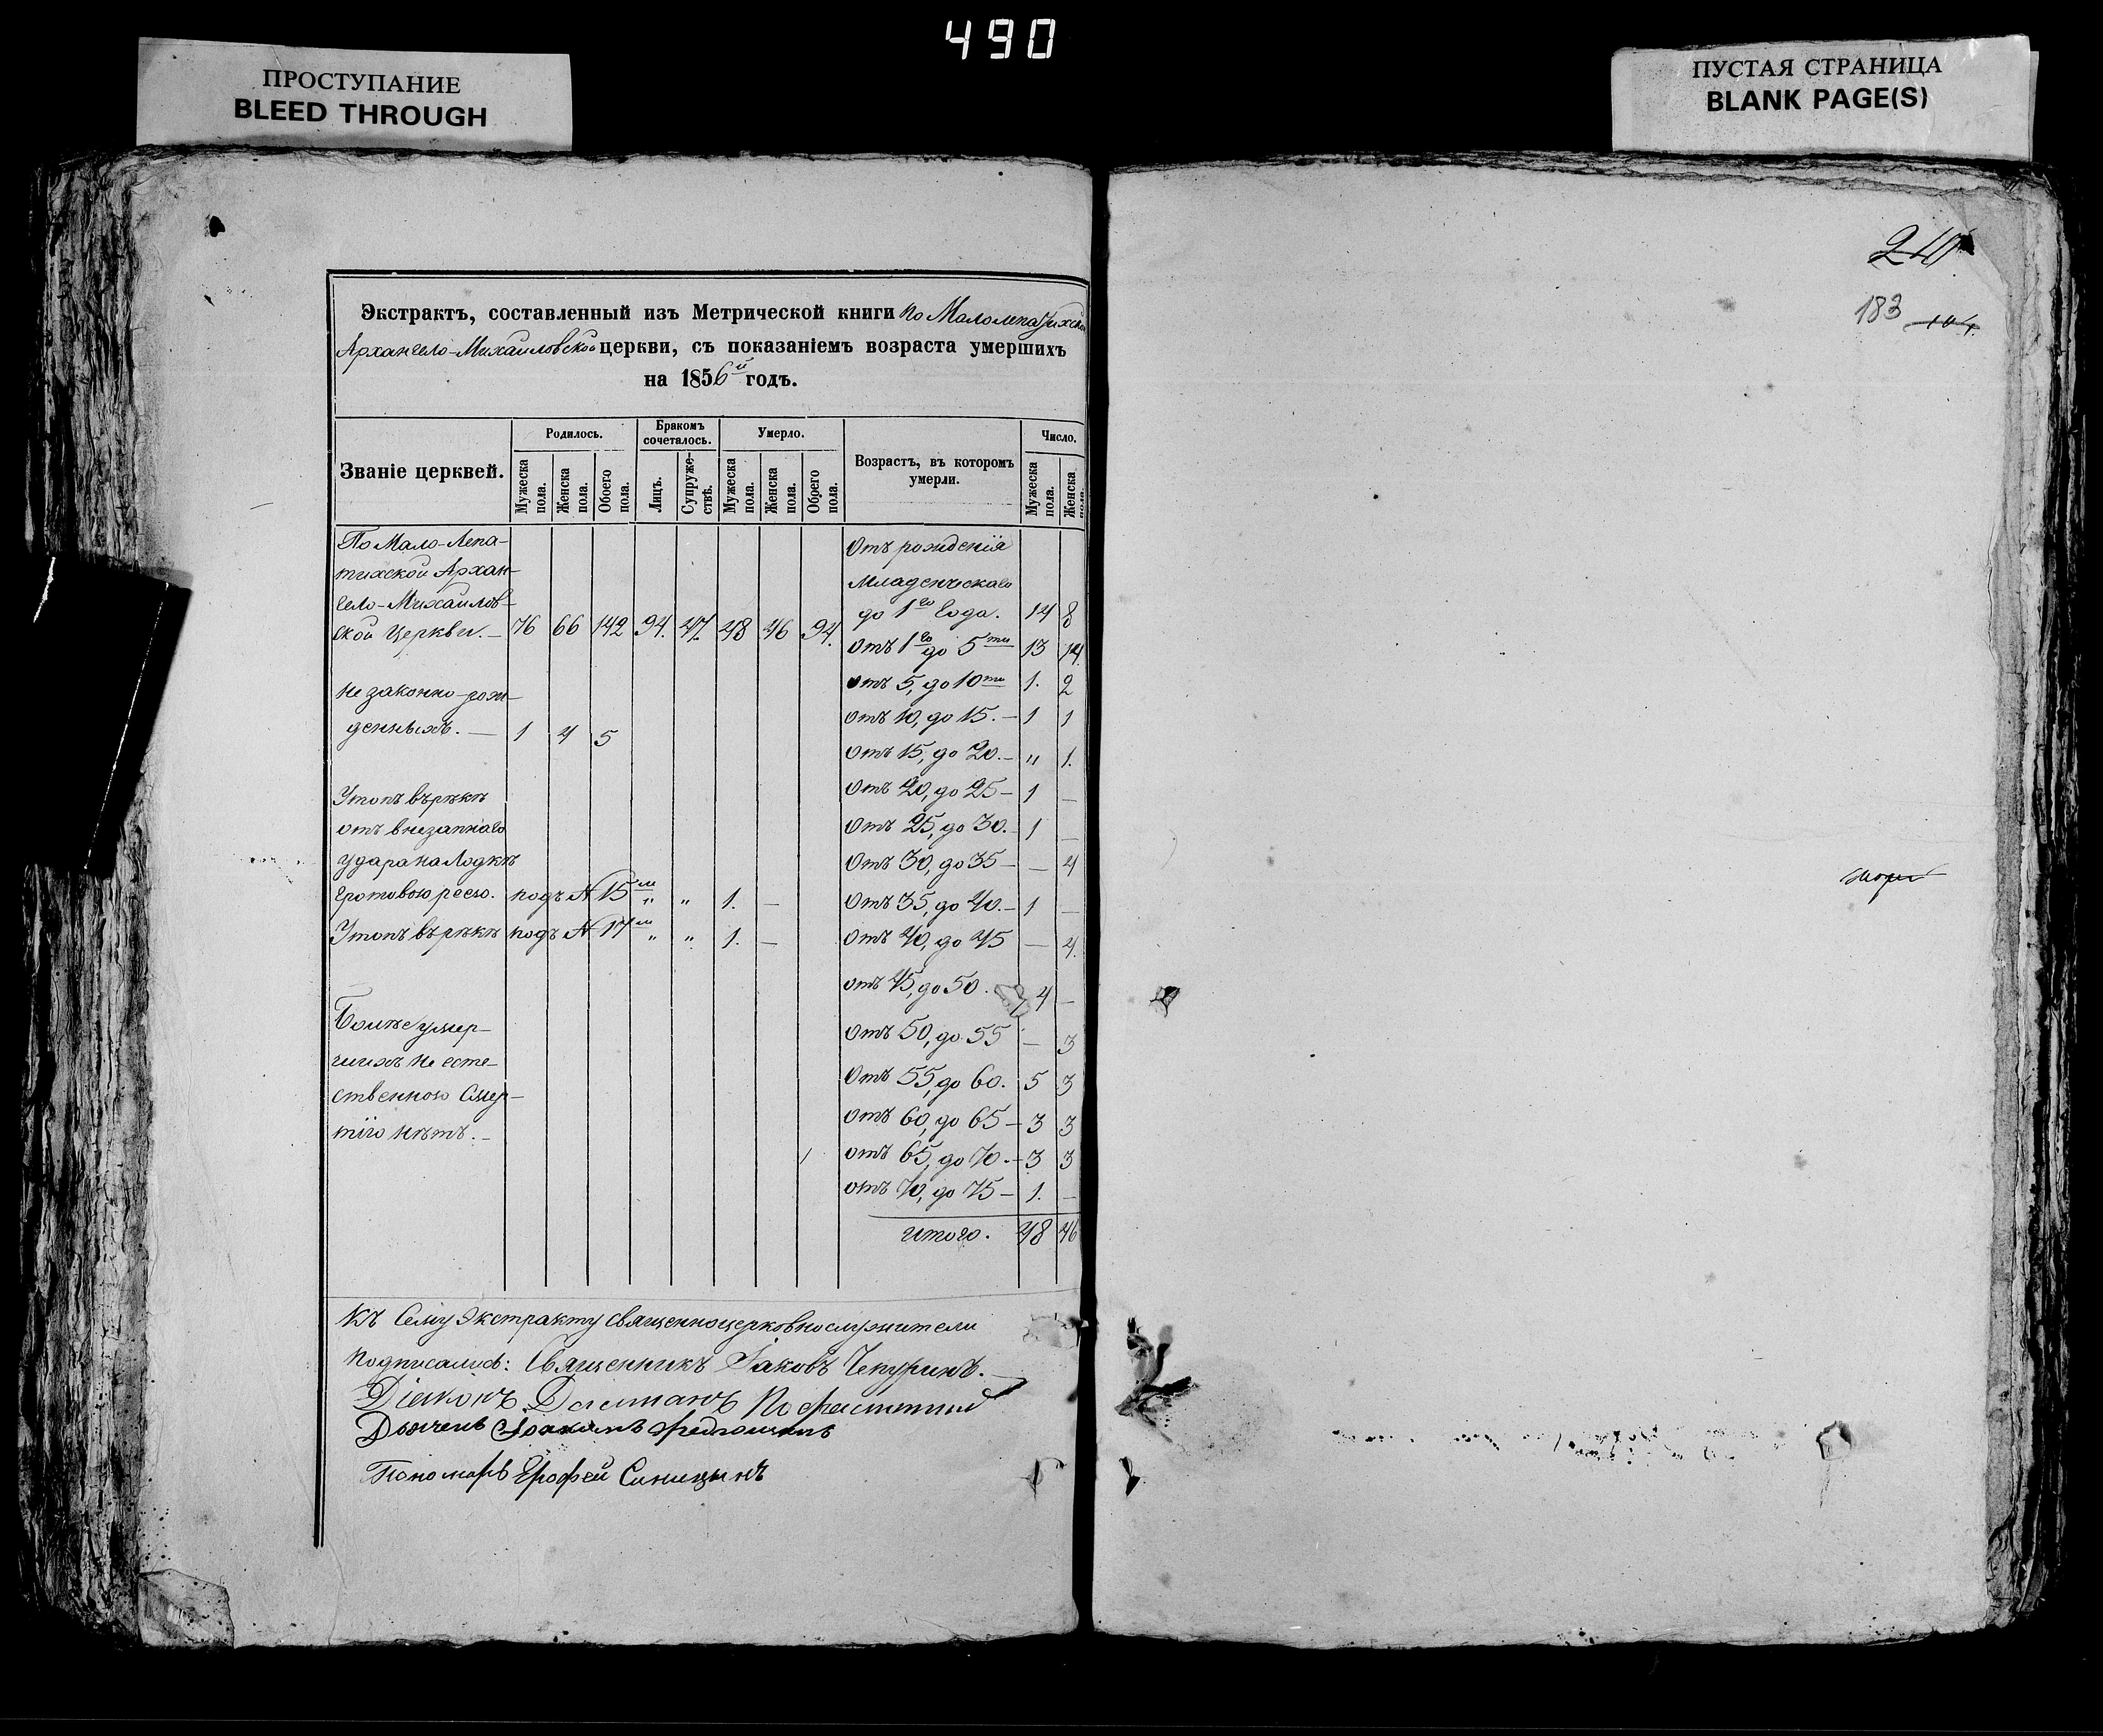 490
ПРОСТУПАНИЕ
BLEED THROUGH
ПУСТАЯ СТРАНИЦА
BLANK PAGE(S)
Экстрактъ, составленный изъ Метрической книги по Малолепатихской
Архангело-Михаиловской церкви, съ показаніемъ возраста умершихъ
на 1856й годъ.
Званіе церквей.
Родилось.
Мужеска пола.
Женска пола.
Обоего пола.
Бракомъ сочеталось.
Лицъ.
Супружествъ.
Умерло.
Мужеска пола.
Женска пола.
Обоего пола.
Возрастъ, въ которомъ умерли.
Число.
Мужеска пола.
Женска пола.
По Мало-Лепа-
тихской Архан-
гело-Михаилов-
ской Церкви.— 76 66 142 94. 47. 48 46 94.
не законно-рож-
денныхъ.— 1 4 5
Утопъ върѣкѣ
отъ внезапнаго
удара на Лодкѣ
подъ № 15м " " 1. —
Утопъ върѣкѣ подъ № 17м " " 1. —
Болѣе умер-
шихъ не есте-
ственною Смер-
тію нѣтъ.—
Отъ рожденія
младенческаго
до 1го Года. 14 8
отъ 1го до 5ти 13 14.
отъ 5, до 10ти 1. 2
отъ 10, до 15.— 1 1
отъ 15, до 20.— " 1.
отъ 20, до 25— 1 —
отъ 25, до 30. 1 —
отъ 30, до 35— — 4
отъ 35, до 40.— 1 —
отъ 40, до 45 — 4.
отъ 45, до 50. 4 —
отъ 50, до 55 — 3
отъ 55, до 60. 5 3
отъ 60, до 65— 3 3
отъ 65, до 70.— 3 3
отъ 70, до 75— 1. —
итого. 48 46
Къ Сему Экстракту священноцерковнослужители
подписались: Священникъ Іаковъ Чепуринъ.
Діаконъ
Дьячекъ
Пономарь Ерофей Синицынъ
240
183